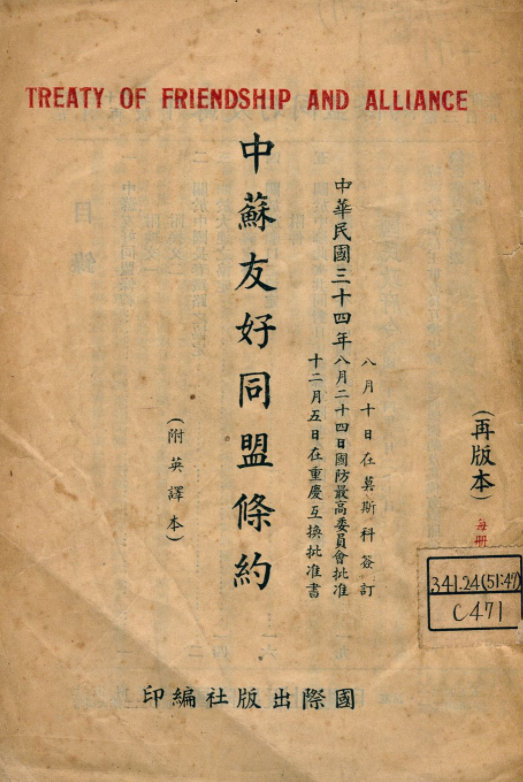 TREATY OF FRIENDSHIP AND ALLIANCE
(再版本)
每册
八月十日在莫斯科簽訂
中華民國三十四年八月二十四日國防最高委員會批准
十二月五日在重慶互換批准書
中蘇友好同盟條約
(附英譯本)
341.24(51:47)
C471
印編社版出際國